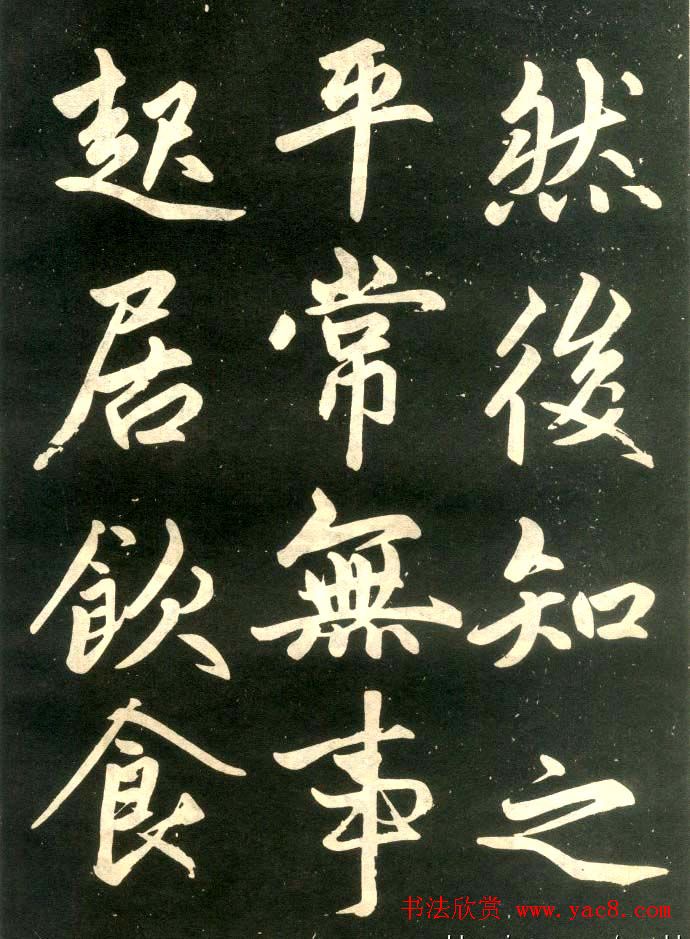 然後知之
平常無事
起居飲食
书法欣赏 www.yac8.com